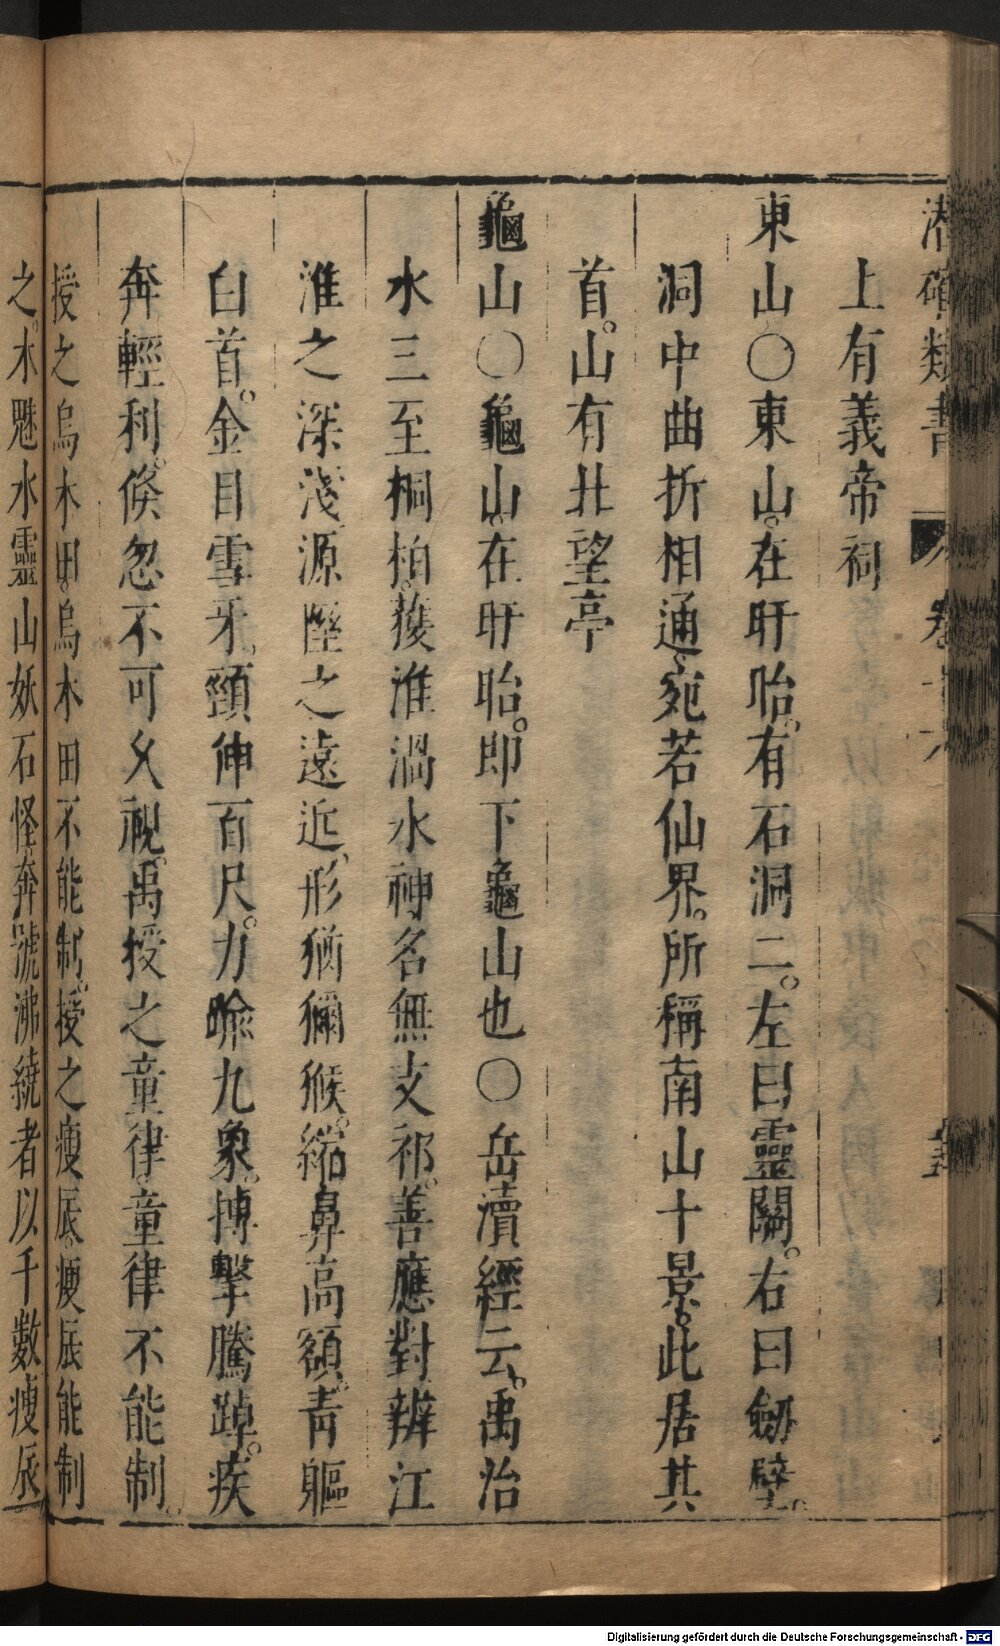 潛確類書 卷十六
上有義帝祠
東山〇東山。在盱眙。有石洞二。左曰靈關。右曰劒壁。
洞中曲折相通。宛若仙界。所稱南山十景。此居其
首。山有北望亭
龜山〇龜山。在盱眙。卽下龜山也〇岳瀆經云。禹治
水三至桐柏。獲淮渦水神名無支祁。善應對辨江
淮之深淺源隰之遠近。形猶獼猴。縮鼻高額。青軀
白首。金目雪牙。頸伸百尺。力踰九象。搏擊騰踔。疾
奔輕利。倐忽不可久視。禹授之童律。童律不能制。
授之烏木田。烏木田不能制。授之庚辰。庚辰能制
之。木魅水靈山妖石怪。奔號沸繞者以千數庚辰
Digitalisierung gefördert durch die Deutsche Forschungsgemeinschaft - DFG